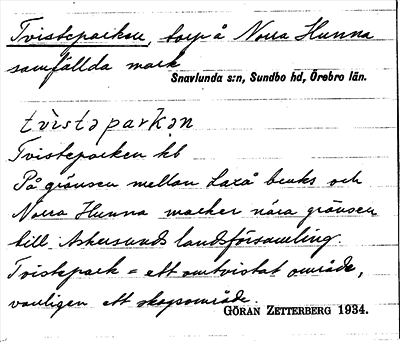 Tvisteparken, torp å Norra Hunna
samfällda mark
Snavlunda s:n, Sundbo hd, Örebro län.
tvìstəparkən
Tvisteparken hb
På gränsen mellan Laxå bruks och
Norra Hunna marker nära gränsen
till Askersunds landsförsamling.
Tvistepark = ett omtvistat område,
vanligen ett skogsområde.
GÖRAN ZETTERBERG 1934.